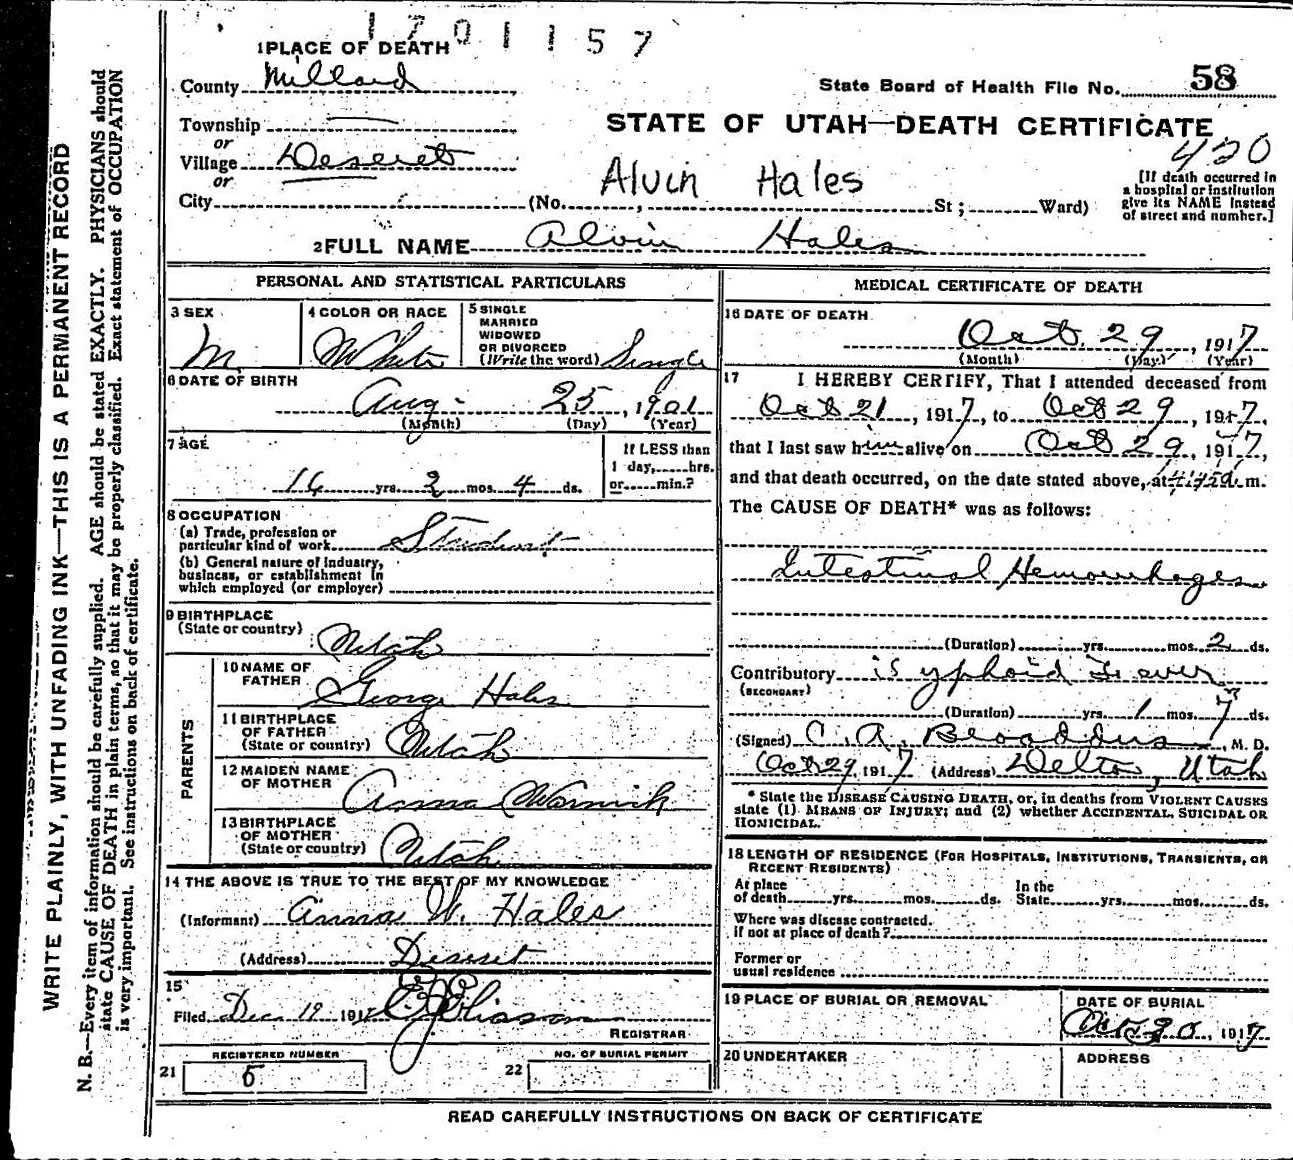 1701157
1 PLACE OF DEATH
County Millard
State Board of Health File No. 58
Township —
or
STATE OF UTAH—DEATH CERTIFICATE
420
Village Deseret
or
Alvin Hales
[If death occurred in
a hospital or institution
give its NAME instead
of street and number.]
City (No. , St ; Ward)
2 FULL NAME Alvin Hales
PERSONAL AND STATISTICAL PARTICULARS
3 SEX
M
4 COLOR OR RACE
White
5 SINGLE
MARRIED
WIDOWED
OR DIVORCED
(Write the word) Single
6 DATE OF BIRTH
Aug. 25, 1901
(Month) (Day) (Year)
7 AGE
16 yrs. 2 mos. 4 ds.
If LESS than
1 day, hrs.
or min.?
8 OCCUPATION
(a) Trade, profession or
particular kind of work Student
(b) General nature of industry,
business, or establishment in
which employed (or employer)
9 BIRTHPLACE
(State or country) Utah
PARENTS
10 NAME OF
FATHER George Hales
11 BIRTHPLACE
OF FATHER
(State or country) Utah
12 MAIDEN NAME
OF MOTHER Anna Warnick
13 BIRTHPLACE
OF MOTHER
(State or country) Utah
14 THE ABOVE IS TRUE TO THE BEST OF MY KNOWLEDGE
(Informant) Anna W. Hales
(Address) Deseret
15
Filed Dec 19 191
REGISTRAR
21 REGISTERED NUMBER
5
22 NO. OF BURIAL PERMIT
MEDICAL CERTIFICATE OF DEATH
16 DATE OF DEATH
Oct. 29, 1917
(Month) (Day) (Year)
17 I HEREBY CERTIFY, That I attended deceased from
Oct 21, 1917, to Oct 29, 1917,
that I last saw him alive on Oct 29, 1917,
and that death occurred, on the date stated above, at m.
The CAUSE OF DEATH* was as follows:
Intestinal Hemorrhages
(Duration) yrs. mos. 2 ds.
Contributory Typhoid Fever
(SECONDARY)
(Duration) yrs. 1 mos. 7 ds.
(Signed) C. A. Broaddus, M. D.
Oct 29, 1917 (Address) Delta, Utah
* State the DISEASE CAUSING DEATH, or, in deaths from VIOLENT CAUSES
state (1) MEANS OF INJURY; and (2) whether ACCIDENTAL, SUICIDAL OR
HOMICIDAL.
18 LENGTH OF RESIDENCE (FOR HOSPITALS, INSTITUTIONS, TRANSIENTS, OR
RECENT RESIDENTS)
At place
of death yrs. mos. ds.
In the
State yrs. mos. ds.
Where was disease contracted.
if not at place of death?
Former or
usual residence
19 PLACE OF BURIAL OR REMOVAL
DATE OF BURIAL
Oct 30, 1917
20 UNDERTAKER
ADDRESS
READ CAREFULLY INSTRUCTIONS ON BACK OF CERTIFICATE
WRITE PLAINLY, WITH UNFADING INK—THIS IS A PERMANENT RECORD
N. B.—Every item of information should be carefully supplied. AGE should be stated EXACTLY. PHYSICIANS should
state CAUSE OF DEATH in plain terms, so that it may be properly classified. Exact statement of OCCUPATION
is very important. See instructions on back of certificate.